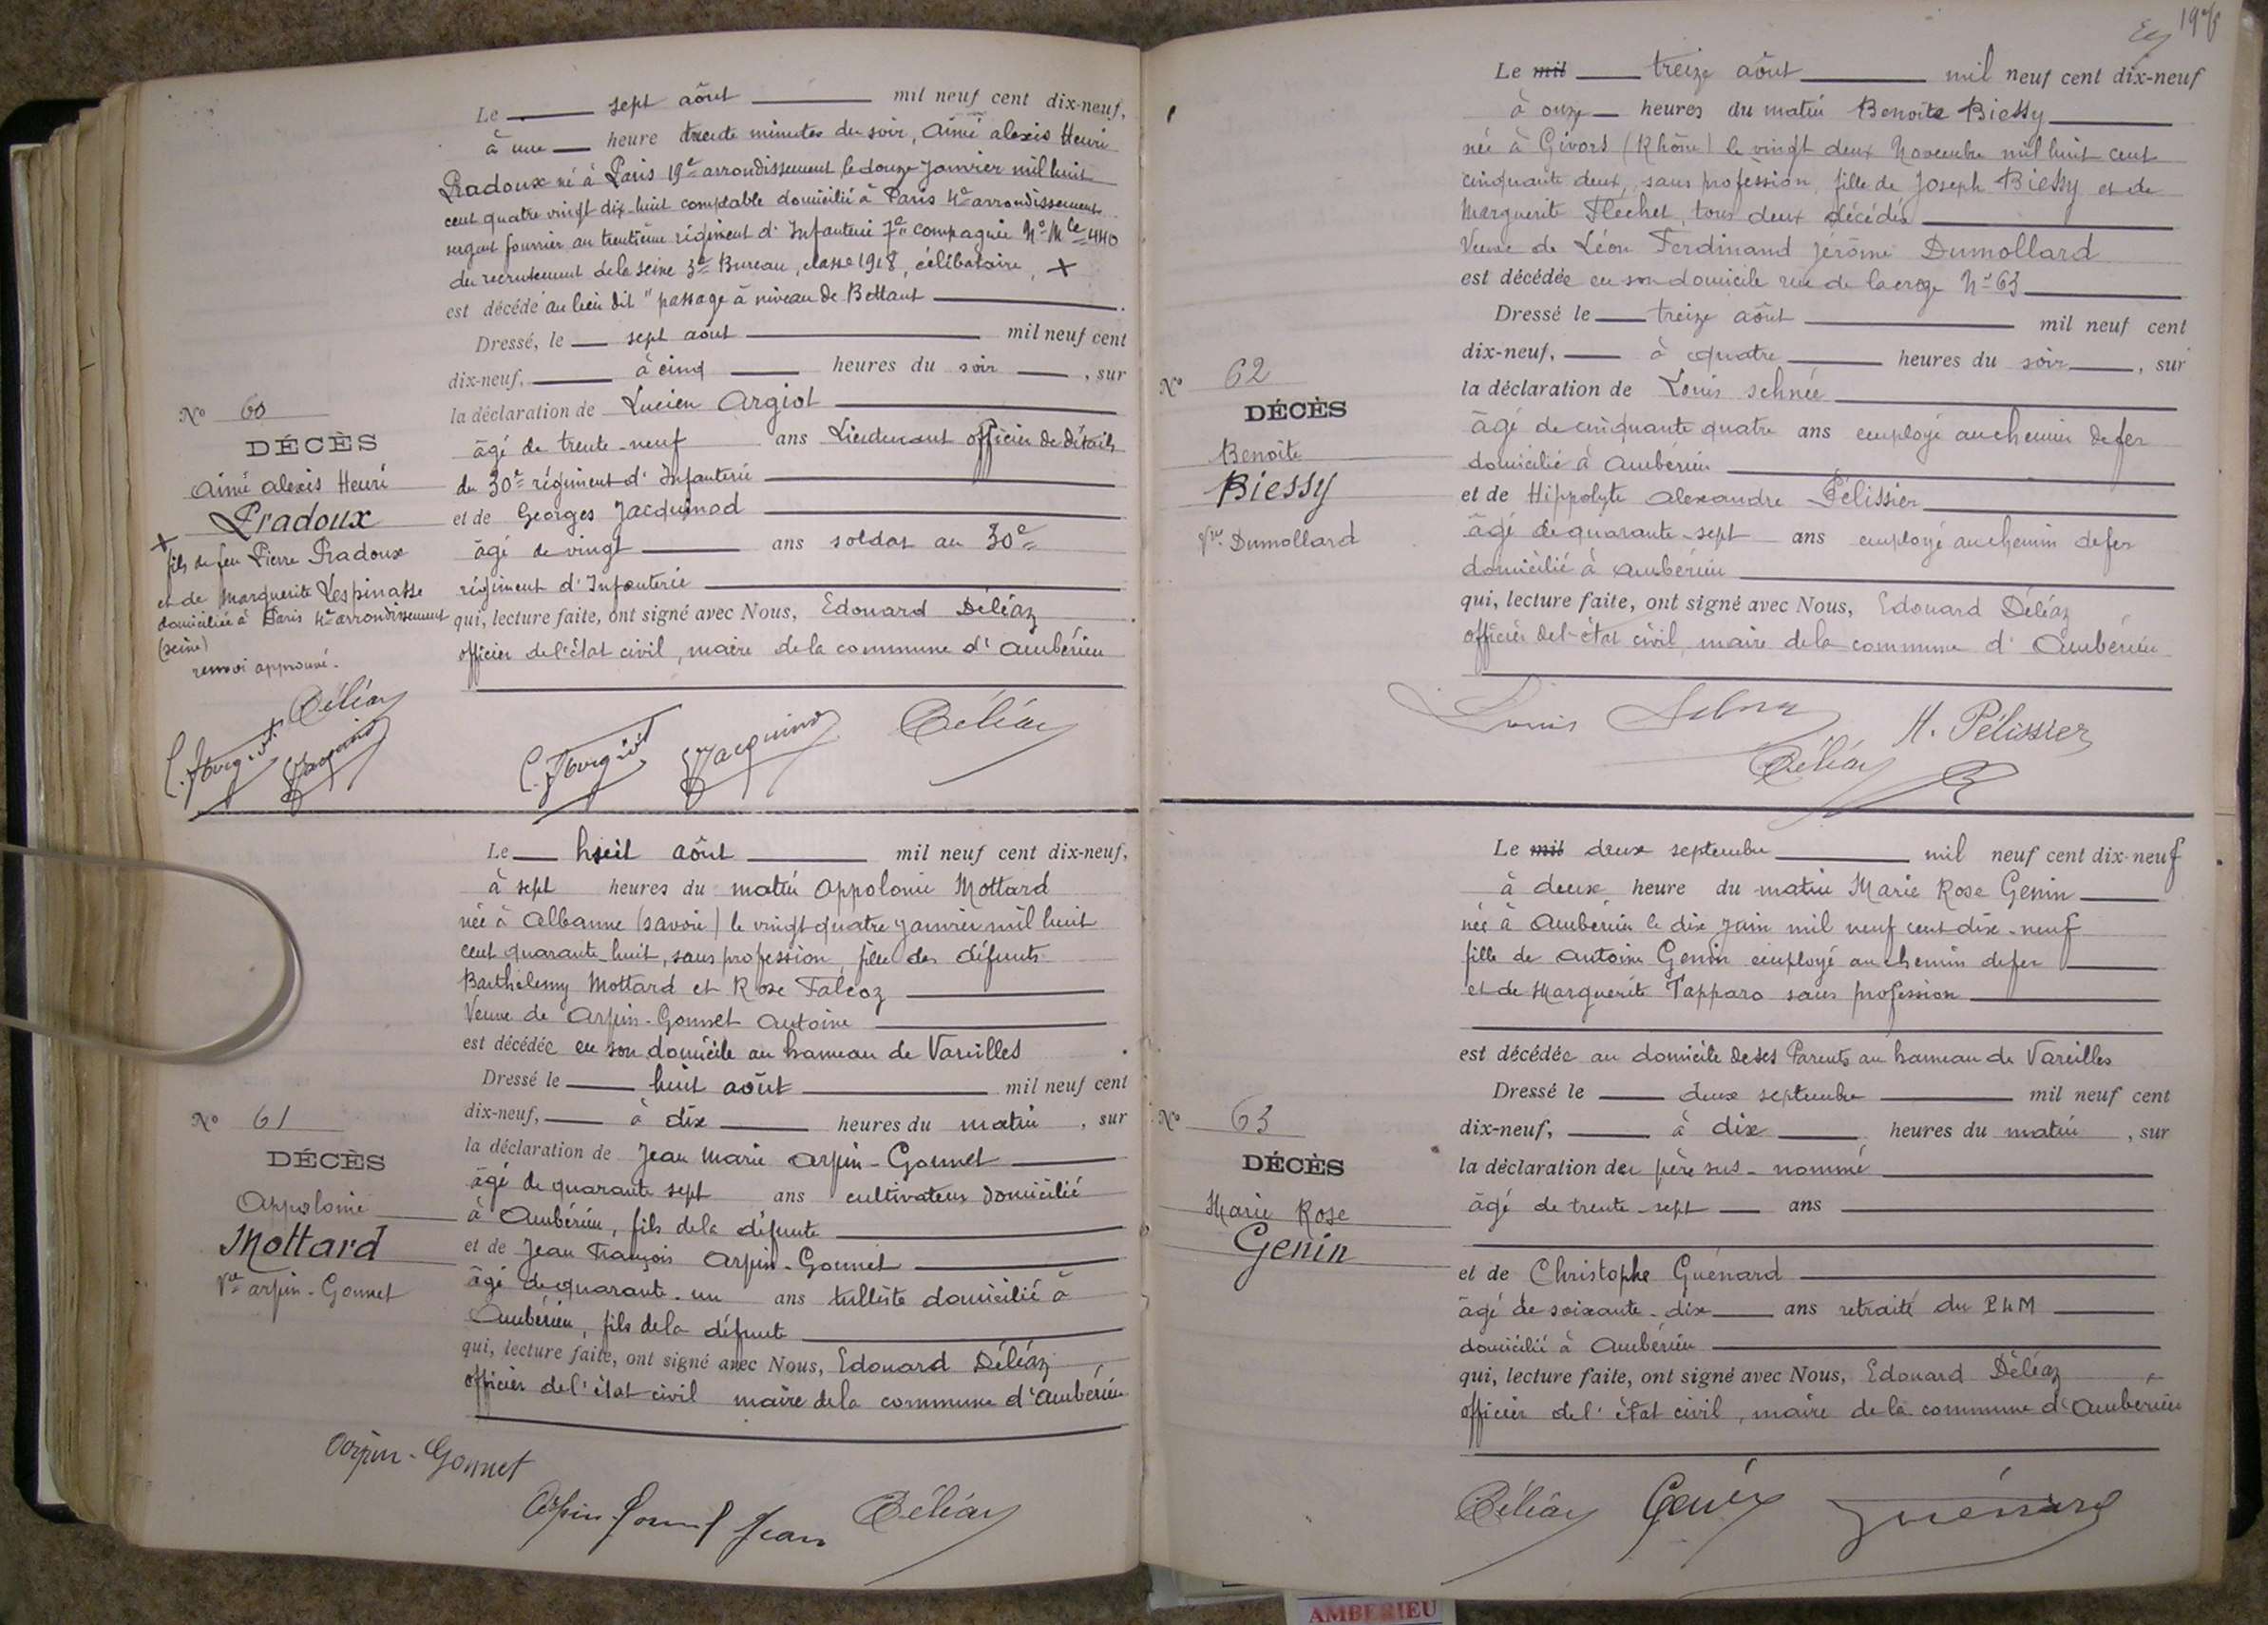 Le sept aôut mil neuf cent dix-neuf,
à une heure trente minutes du soir, Aimé Alexis Henri
Pradoux né à Paris 19e arrondissement le douze Janvier mil huit
cent quatre vingt dix huit comptable domicilié à Paris 4e arrondissement
sergent fourrier au trentième régiment d'Infanterie 7e compagnie No Mle 440
du recrutement de la seine 3e Bureau, classe 1918, célibataire, X
est décédé au lieu dit "passage à niveau de Bettant
Dressé, le sept aôut mil neuf cent
dix-neuf, à cinq heures du soir, sur
la déclaration de Lucien Argiot
âgé de trente-neuf ans Lieutenant officier de détails
du 30e régiment d'Infanterie
et de Georges Jacquinod
âgé de vingt ans soldat au 30e
régiment d'Infanterie
qui, lecture faite, ont signé avec Nous, Edouard Déléaz
officier de l'état civil, maire de la commune d'Ambérieu
No 60
DÉCÈS
Aimé Alexis Henri
Pradoux
X
fils de feu Pierre Pradoux
et de Marguerite Lespinasse
domiciliée à Paris 4e arrondissement
(seine)
renvoi approuvé.
Déléaz
Jacquinod
Jacquinod Déléaz
Le huit aôut mil neuf cent dix-neuf,
à sept heures du matin Appolonie Mottard
née à Albanne (savoie) le vingt quatre janvier mil huit
cent quarante-huit, sans profession, fille des défunts
Barthélemy Mottard et Rose Falcoz
Veuve de Arpin-Gonnet Antoine
est décédée en son domicile au hameau de Vareilles
Dressé le huit aôut mil neuf cent
dix-neuf, à dix heures du matin, sur
la déclaration de Jean Marie Arpin-Gonnet
âgé de quarante sept ans cultivateur domicilié
à Ambérieu, fils de la défunte
et de Jean François Arpin-Gonnet
âgé de quarante-un ans tulliste domicilié à
Ambérieu, fils de la défunte
qui, lecture faite, ont signé avec Nous, Edouard Déléaz
officier de l'état civil maire de la commune d'Ambérieu
No 61
DÉCÈS
Appolonie
Mottard
Ve Arpin-Gonnet
Arpin-Gonnet
Arpin Gonnet Jean Déléaz
Le mil treize aôut mil neuf cent dix-neuf
à onze heures du matin Benoîte Biessy
née à Givors (Rhône) le vingt deux Novembre mil huit cent
cinquante deux, sans profession, fille de Joseph Biessy et de
Marguerite Fléchet, tous deux décédés
Veuve de Léon Ferdinand Jérôme Dumollard
est décédée en son domicile rue de la croze No 63
Dressé le treize aôut mil neuf cent
dix-neuf, à quatre heures du soir, sur
la déclaration de Louis Schnée
âgé de cinquante quatre ans employé au chemin de fer
domicilié à Ambérieu
et de Hippolyte Alexandre Pélissier
âgé de quarante-sept ans employé au chemin de fer
domicilié à Ambérieu
qui, lecture faite, ont signé avec Nous, Edouard Déléaz
officier de l'état civil, maire de la commune d'Ambérieu
No 62
DÉCÈS
Benoîte
Biessy
Vve Dumollard
Louis H. Pélissier
Déléaz
Le mil deux septembre mil neuf cent dix-neuf
à deux heure du matin Marie Rose Genin
née à Ambérieu le dix Juin mil neuf cent dix-neuf
fille de Antoine Genin employé au chemin de fer
et de Marguerite Tapparo sans profession
est décédée au domicile de ses Parents au hameau de Vareilles
Dressé le deux septembre mil neuf cent
dix-neuf, à dix heures du matin, sur
la déclaration du père sus-nommé
âgé de trente-sept ans
et de Christophe Guénard
âgé de soixante-dix ans retraité du PLM
domicilié à Ambérieu
qui, lecture faite, ont signé avec Nous, Edouard Déléaz
officier de l'état civil, maire de la commune d'Ambérieu
No 63
DÉCÈS
Marie Rose
Genin
Déléaz Genin Guénard
AMBERIEU